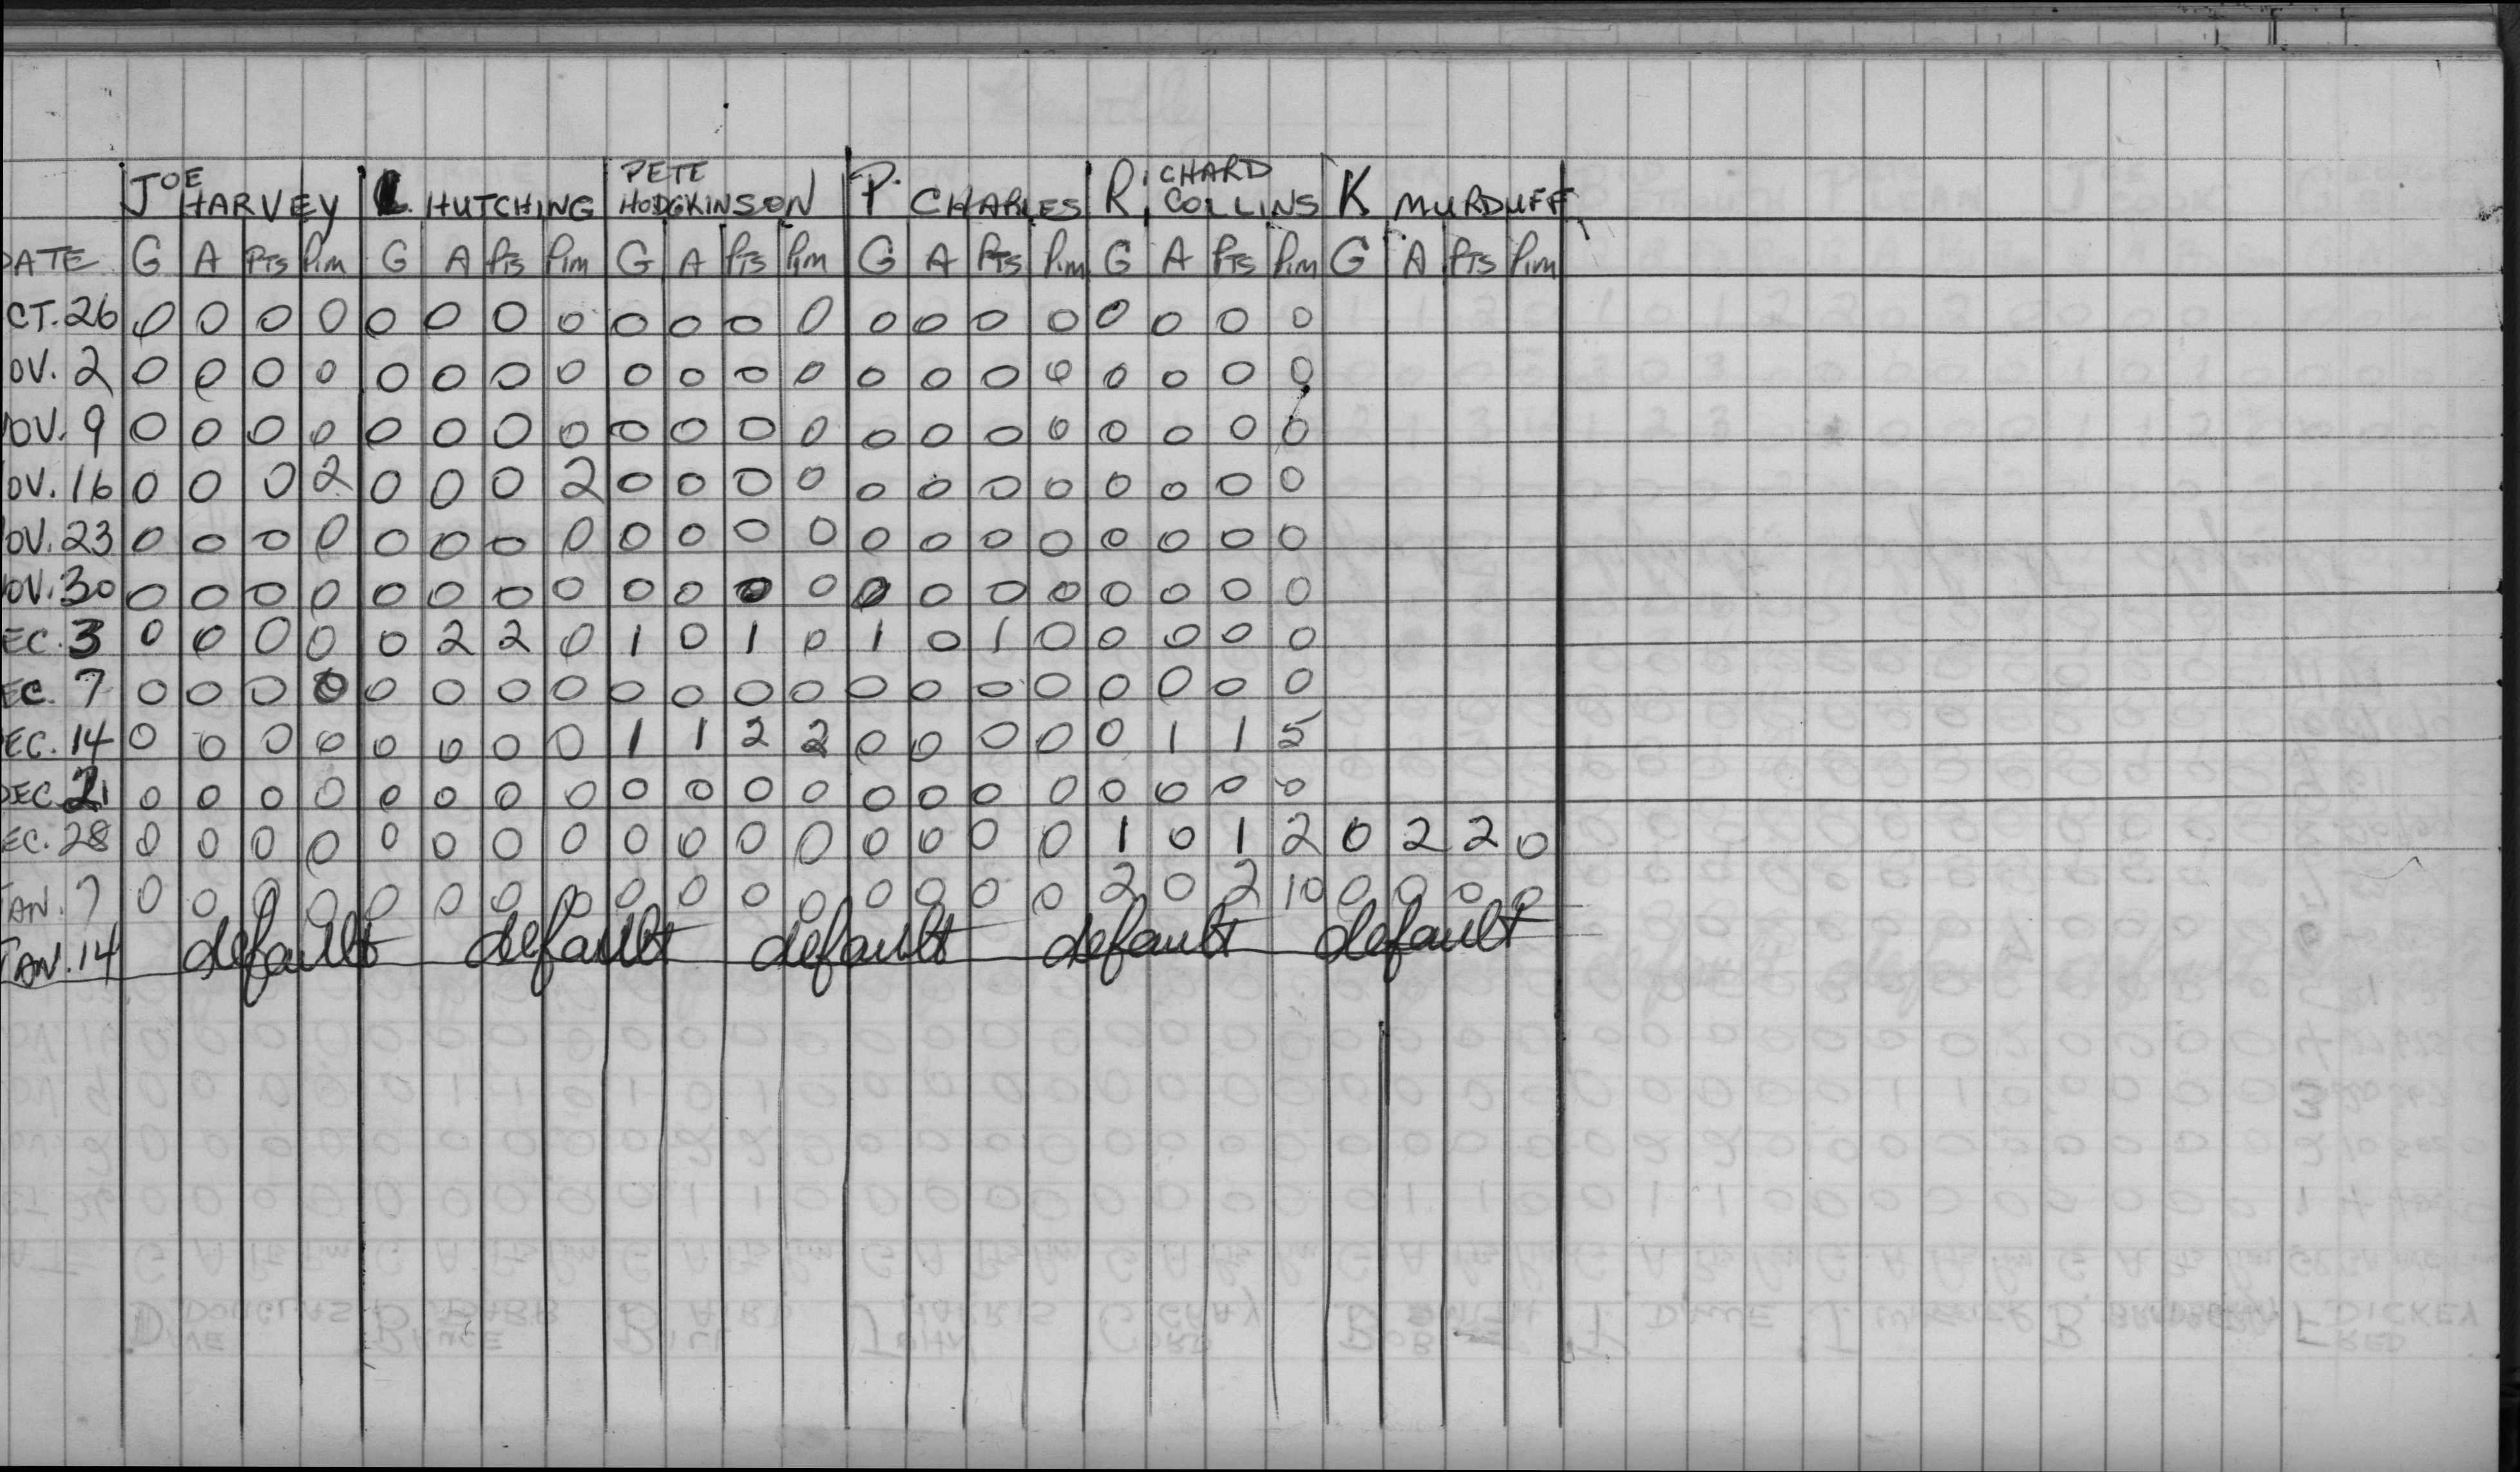 JOE HARVEY L. HUTCHING PETE HODGKINSON P. CHARLES RICHARD COLLINS K MURDUFF
DATE G A PTS Pim G A PTS Pim G A PTS Pim G A PTS Pim G A PTS Pim G A PTS Pim
CT. 26 0 0 0 0 0 0 0 0 0 0 0 0 0 0 0 0 0 0 0 0
OV. 2 0 0 0 0 0 0 0 0 0 0 0 0 0 0 0 0 0 0 0 0
OV. 9 0 0 0 0 0 0 0 0 0 0 0 0 0 0 0 0 0 0 0 0
OV. 16 0 0 0 2 0 0 0 2 0 0 0 0 0 0 0 0 0 0 0 0
OV. 23 0 0 0 0 0 0 0 0 0 0 0 0 0 0 0 0 0 0 0 0
OV. 30 0 0 0 0 0 0 0 0 0 0 0 0 0 0 0 0 0 0 0 0
EC. 3 0 0 0 0 0 2 2 0 1 0 1 0 1 0 1 0 0 0 0 0
EC. 7 0 0 0 0 0 0 0 0 0 0 0 0 0 0 0 0 0 0 0 0
EC. 14 0 0 0 0 0 0 0 0 1 1 2 2 0 0 0 0 0 1 1 5
DEC. 21 0 0 0 0 0 0 0 0 0 0 0 0 0 0 0 0 0 0 0 0
EC. 28 0 0 0 0 0 0 0 0 0 0 0 0 0 0 0 0 1 0 1 2 0 2 2 0
JAN. 7 0 0 0 0 0 0 0 0 0 0 0 0 0 0 0 0 2 0 2 10 0 0 0 0
JAN. 14 default default default default default